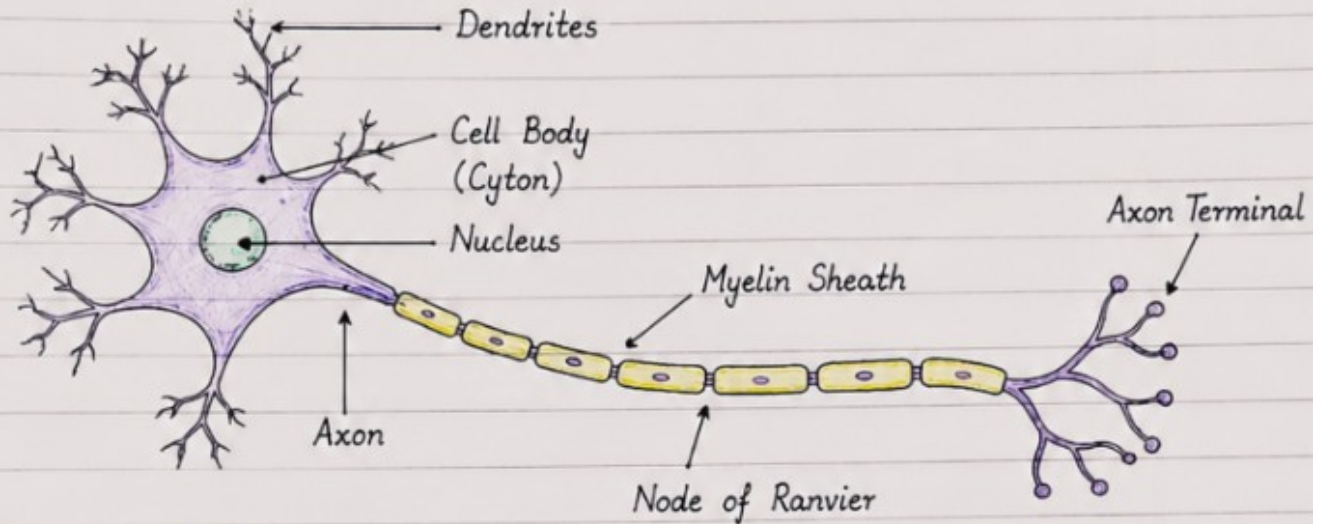 Dendrites
Cell Body
(Cyton)
Nucleus
Axon Terminal
Myelin Sheath
Axon
Node of Ranvier